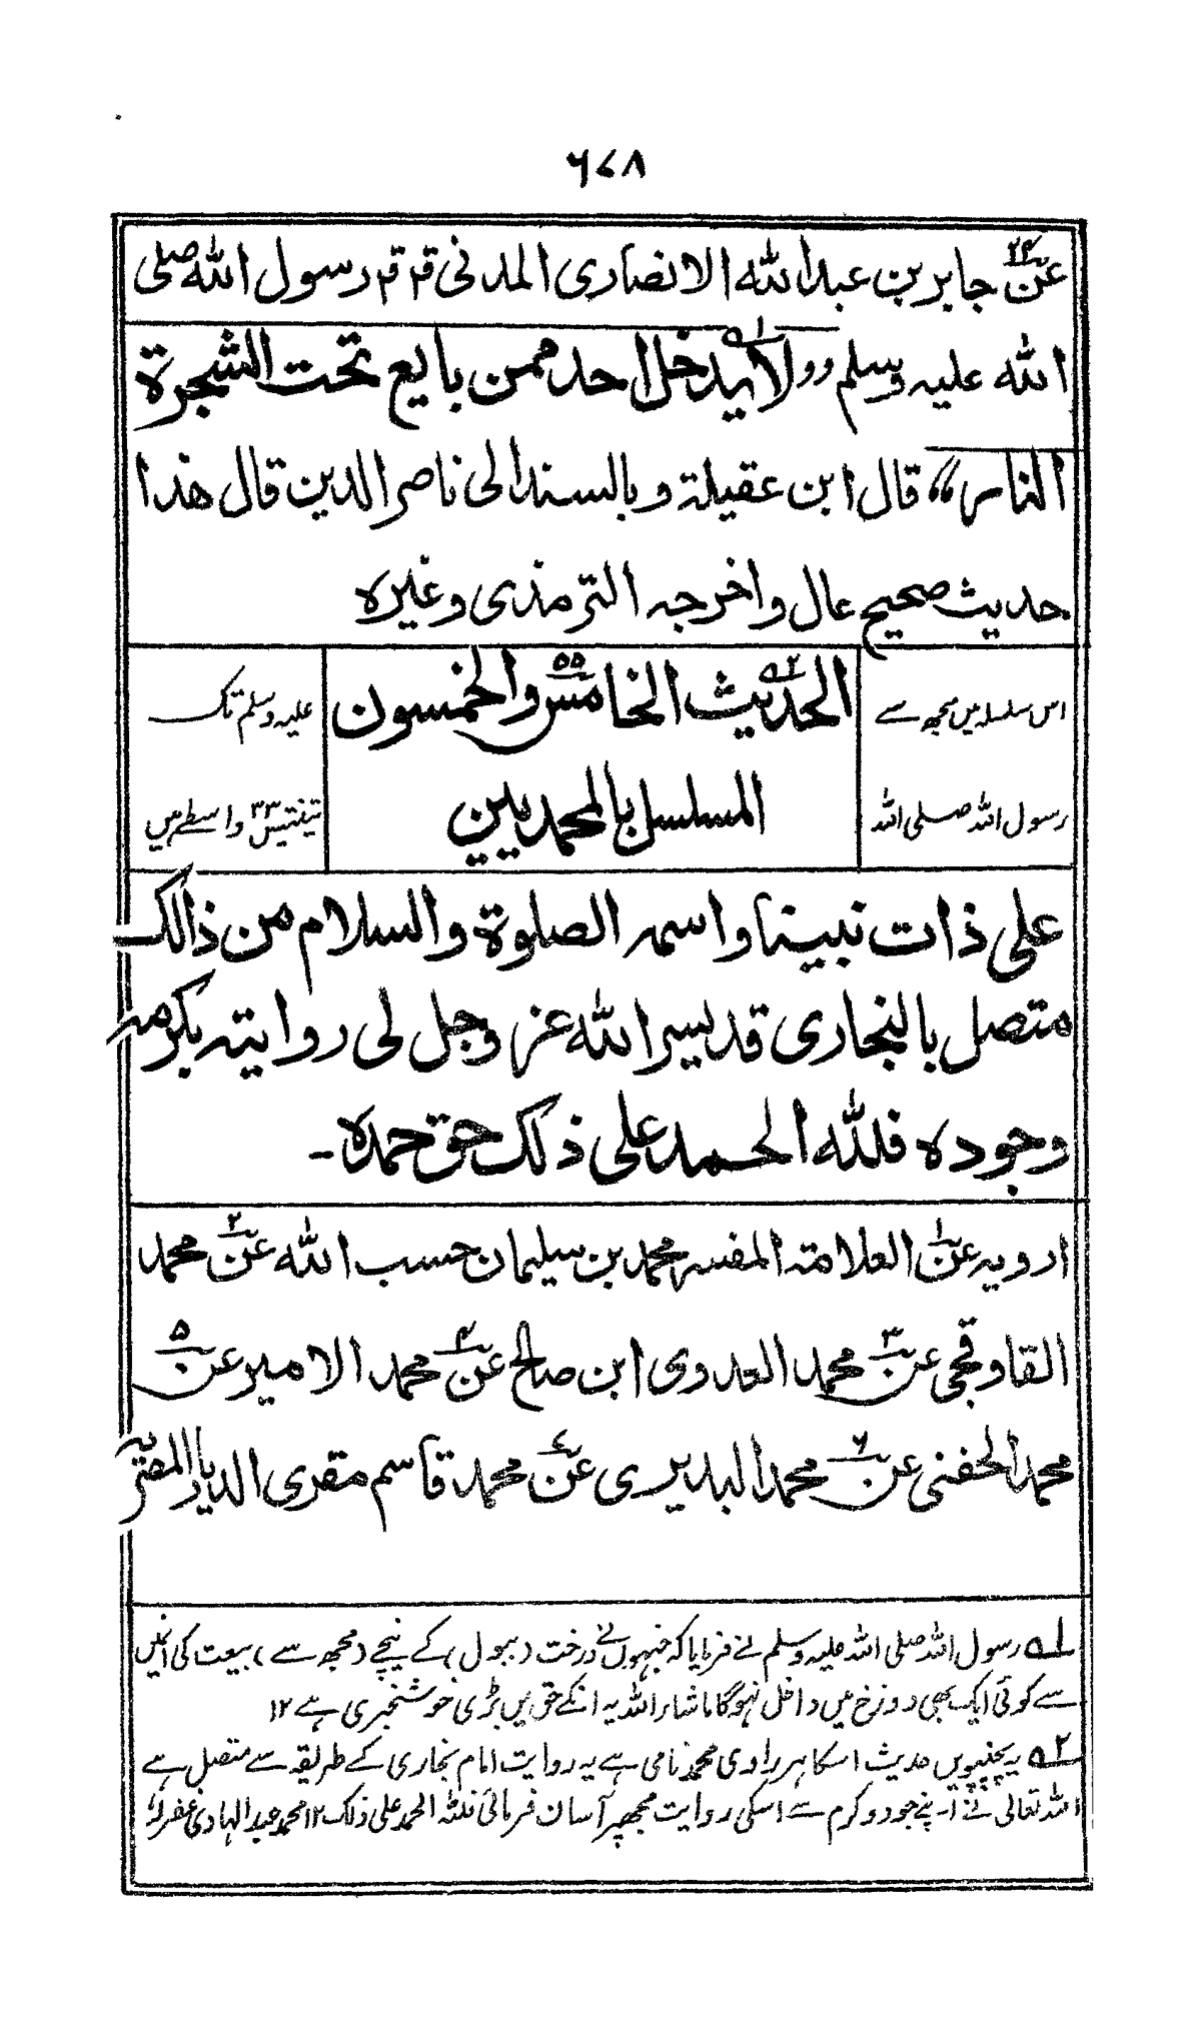 ٦٧٨
عن٢٤ جابر بن عبد الله الانصاری المدنی قَ قَ رسول الله صلی
الله علیہ وسلم وو لا یدخل١ احد ممن بایع تحت الشجرة
النار،، قال ابن عقیلة وبالسند الی ناصر الدین قال هذا
حدیث صحیح عال واخرجہ الترمذی وغیره
الحدیث٢ الخامس٥٥ والخمسون
المسلسل بالمحمدیین
اس سلسلہ میں مجھ سے
رسول اللہ صلی اللہ
علیہ وسلم تک
تینتیس٣٣ واسطے ہیں
علی ذات نبینا واسمہ الصلوة والسلام من ذالک
متصل بالبخاری قد یسر الله عز وجل لی روایتہ بکرمہ
وجوده فلله الحمد علی ذلک حق حمده۔
ارویہ عن١ العلامة المفسر محمد بن سلیمان حسب الله عن٢ محمد
القاوقجی عن٣ محمد العدوی ابن صالح عن٤ محمد الامیر عن٥
محمد الحفنی عن٦ محمد البدیری عن٧ محمد قاسم مقری الدیار المصریہ
١؎ رسول اللہ صلی اللہ علیہ وسلم نے فرمایا کہ جنہوں نے درخت (ببول) کے نیچے (مجھ سے) بیعت کی انمیں
سے کوئی ایک بھی دوزخ میں داخل نہوگا ماشاء اللہ یہ انکے حق میں بڑی خوشخبری ہے ١٢
٢؎ یہ پچپنویں حدیث اسکا ہر راوی محمد نامی ہے یہ روایت امام بخاری کے طریقہ سے متصل ہے
اللہ تعالی نے اپنے جود وکرم سے اسکی روایت مجھپر آسان فرمائی فللہ الحمد علی ذلک ١٢ محمد عبد الہادی غفرلہ